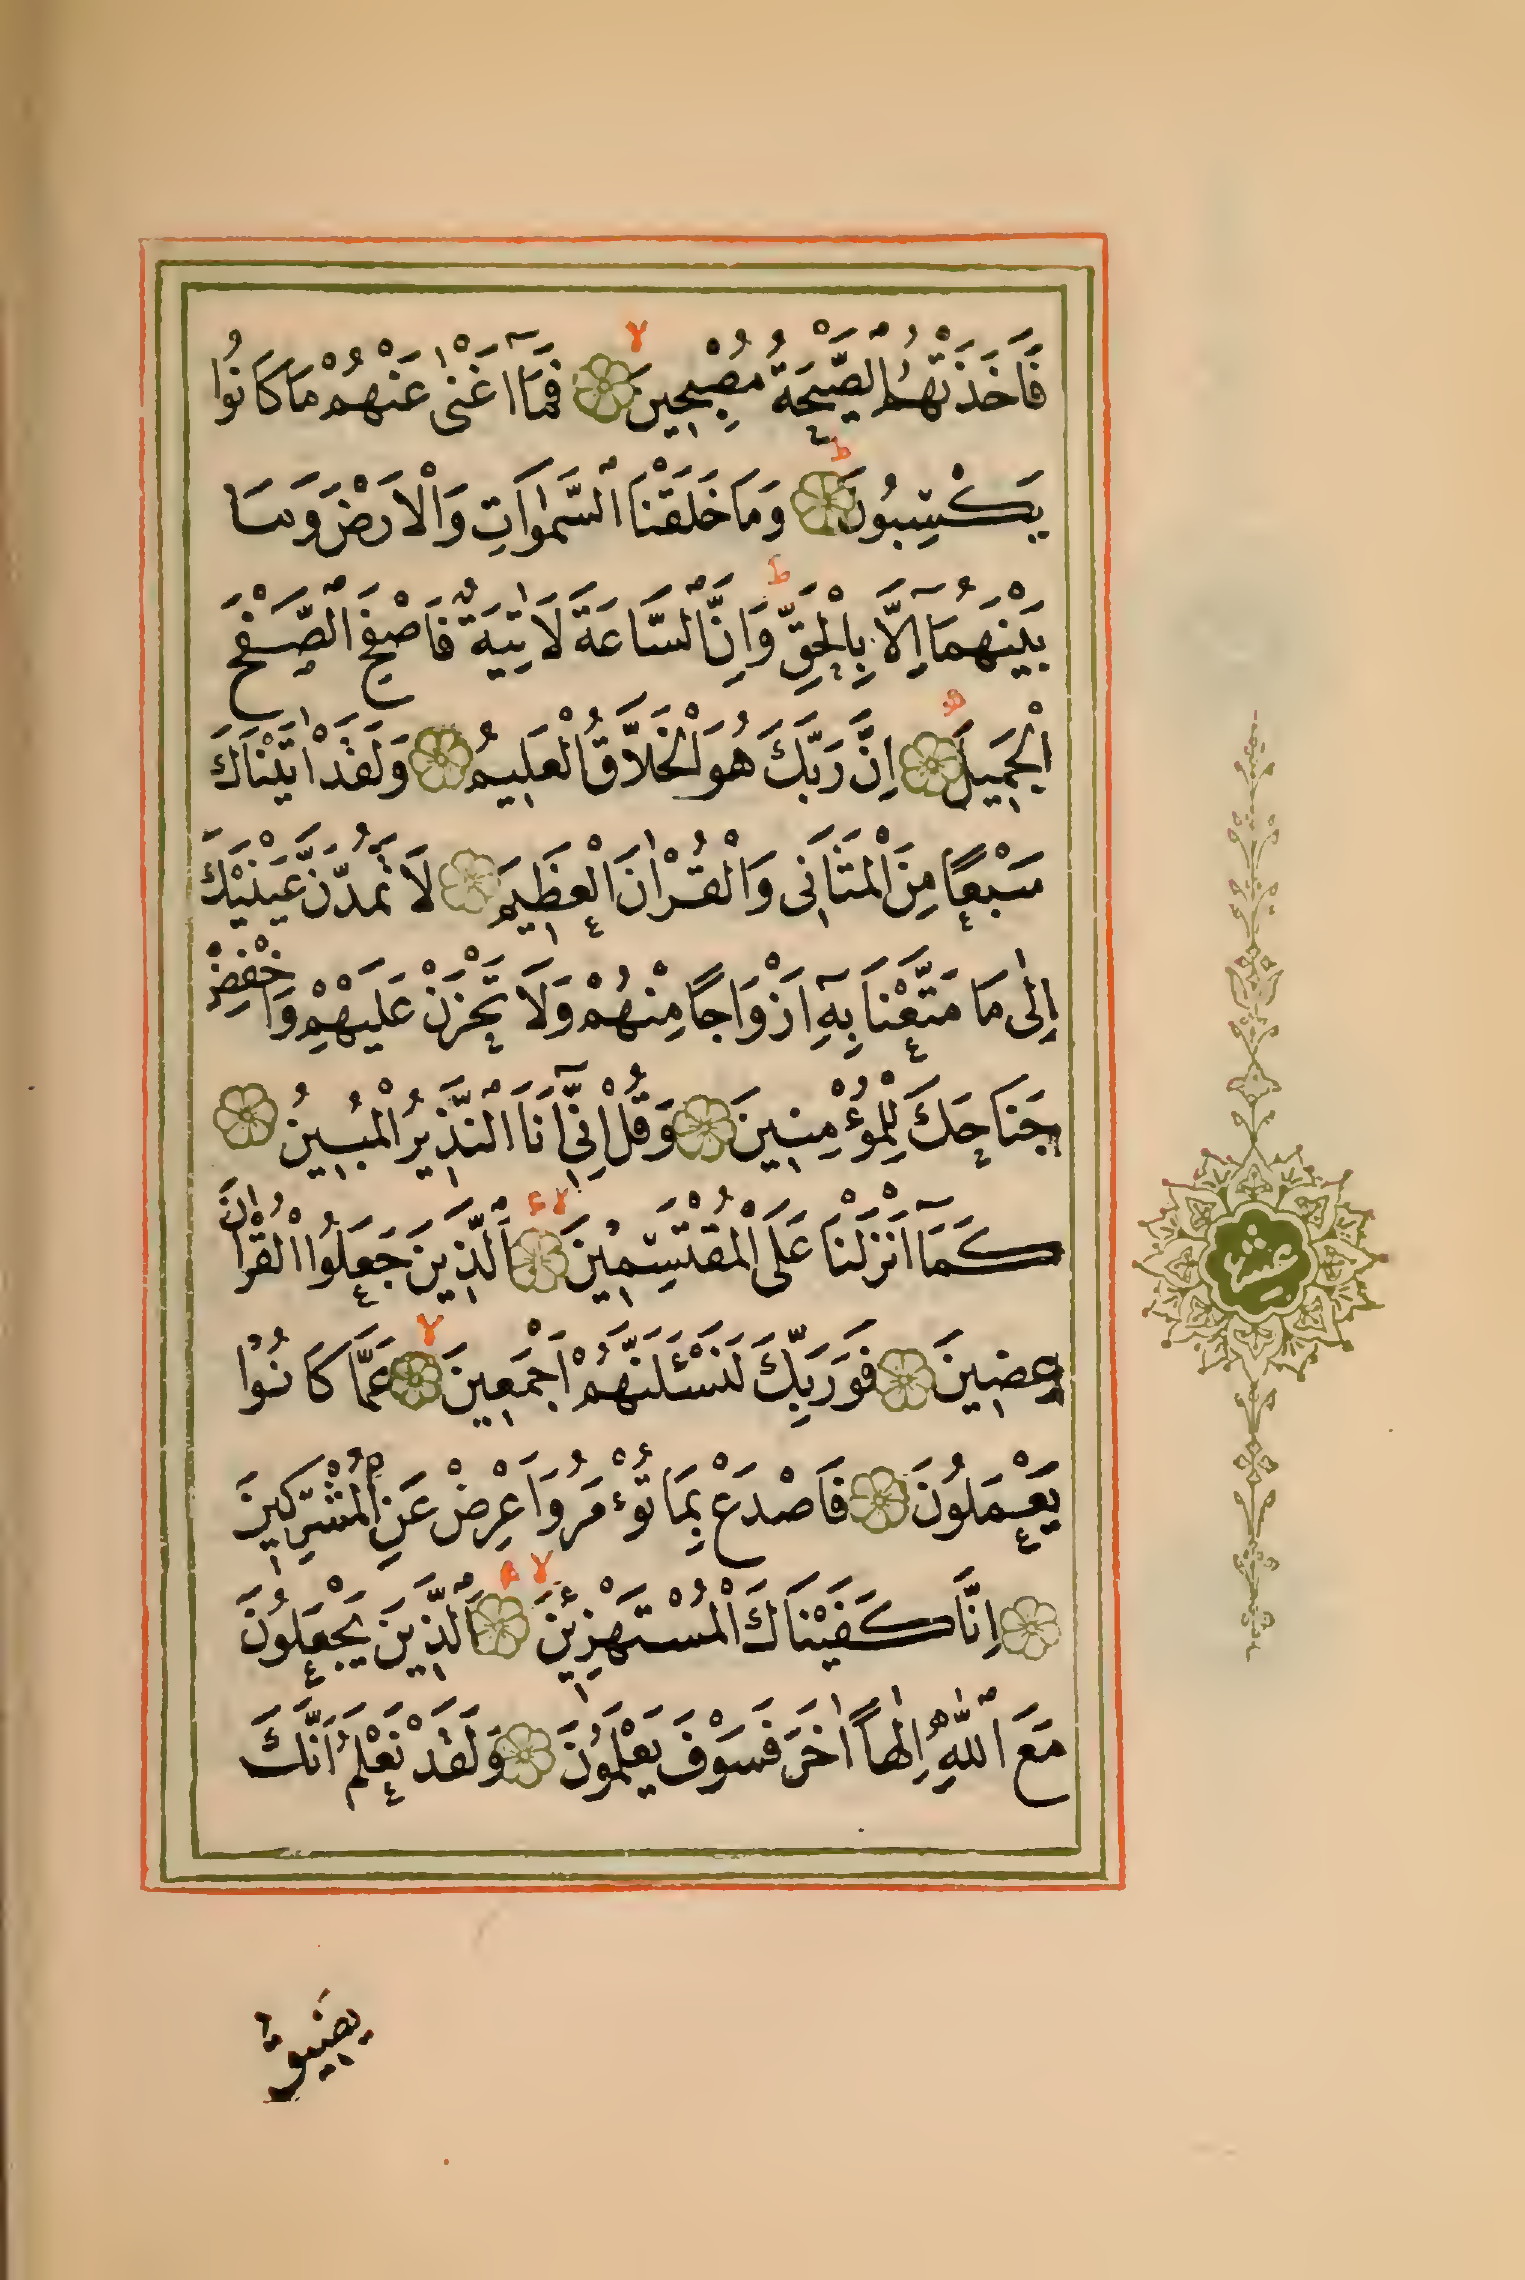 فَاَخَذَتْهُمُ الصَّيْحَةُ مُصْبِحِينَ ۙ فَمَآ اَغْنٰى عَنْهُمْ مَا كَانُوا
يَكْسِبُونَ ۜ وَمَا خَلَقْنَا السَّمٰوَاتِ وَالْاَرْضَ وَمَا
بَيْنَهُمَآ اِلَّا بِالْحَقِّ ۜ وَاِنَّ السَّاعَةَ لَاٰتِيَةٌ فَاصْفَحِ الصَّفْحَ
الْجَمِيلَ اِنَّ رَبَّكَ هُوَ الْخَلَّاقُ الْعَلِيمُ وَلَقَدْ اٰتَيْنَاكَ
سَبْعًا مِنَ الْمَثَانِى وَالْقُرْاٰنَ الْعَظِيمَ لَا تَمُدَّنَّ عَيْنَيْكَ
اِلٰى مَا مَتَّعْنَا بِهِٓ اَزْوَاجًا مِنْهُمْ وَلَا تَحْزَنْ عَلَيْهِمْ وَاخْفِضْ
جَنَاحَكَ لِلْمُؤْمِنِينَ وَقُلْ اِنِّىٓ اَنَا النَّذِيرُ الْمُبِينُ
كَمَآ اَنْزَلْنَا عَلَى الْمُقْتَسِمِينَ ۙ اَلَّذِينَ جَعَلُوا الْقُرْاٰنَ
عِضِينَ فَوَرَبِّكَ لَنَسْـَٔلَنَّهُمْ اَجْمَعِينَ ۙ عَمَّا كَانُوا
يَعْمَلُونَ فَاصْدَعْ بِمَا تُؤْمَرُ وَاَعْرِضْ عَنِ الْمُشْرِكِينَ
اِنَّا كَفَيْنَاكَ الْمُسْتَهْزِئِينَ ۙ اَلَّذِينَ يَجْعَلُونَ
مَعَ اللّٰهِ اِلٰهًا اٰخَرَ فَسَوْفَ يَعْلَمُونَ وَلَقَدْ نَعْلَمُ اَنَّكَ
عشر
يَضِيقُ